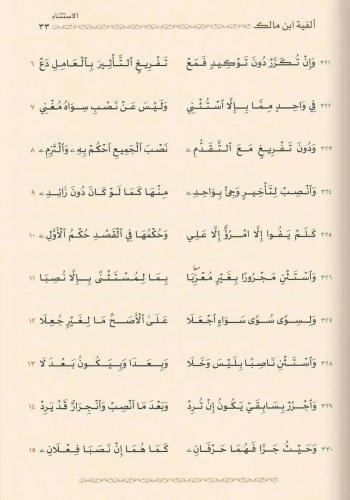 الاستثناء
ألفية ابن مالك ٣٣
٣٢١ وَإِنْ تُكَرَّرْ دُونَ تَوْكِيدٍ فَمَعْ تَفْرِيغٍ التَّأْثِيرَ بِالْعَامِلِ دَعْ ٦
٣٢٢ فِي وَاحِدٍ مِمَّا بِإِلَّا اسْتُثْنِي وَلَيْسَ عَنْ نَصْبِ سِوَاهُ مُغْنِي ٧
٣٢٣ وَدُونَ تَفْرِيغٍ مَعَ التَّقَدُّمِ نَصْبَ الْجَمِيعِ احْكُمْ بِهِ وَالْتَزِمِ ٨
٣٢٤ وَانْصِبْ لِتَأْخِيرٍ وَجِئْ بِوَاحِدِ مِنْهَا كَمَا لَوْ كَانَ دُونَ زَائِدِ ٩
٣٢٥ كَلَمْ يَفُوا إِلَّا امْرُؤٌ إِلَّا عَلِي وَحُكْمُهَا فِي الْقَصْدِ حُكْمُ الْأَوَّلِ ١٠
٣٢٦ وَاسْتَثْنِ مَجْرُورًا بِغَيْرٍ مُعْرَبَا بِمَا لِمُسْتَثْنًى بِإِلَّا نُصِبَا ١١
٣٢٧ وَلِسِوًى سُوًى سَوَاءٍ اجْعَلَا عَلَى الْأَصَحِّ مَا لِغَيْرٍ جُعِلَا ١٢
٣٢٨ وَاسْتَثْنِ نَاصِبًا بِلَيْسَ وَخَلَا وَبِعَدَا وَبِيَكُونُ بَعْدَ لَا ١٣
٣٢٩ وَاجْرُرْ بِسَابِقَيْ يَكُونُ إِنْ تُرِدْ وَبَعْدَ مَا انْصِبْ وَانْجِرَارٌ قَدْ يَرِدْ ١٤
٣٣٠ وَحَيْثُ جَرَّا فَهُمَا حَرْفَانِ كَمَا هُمَا إِنْ نَصَبَا فِعْلَانِ ١٥